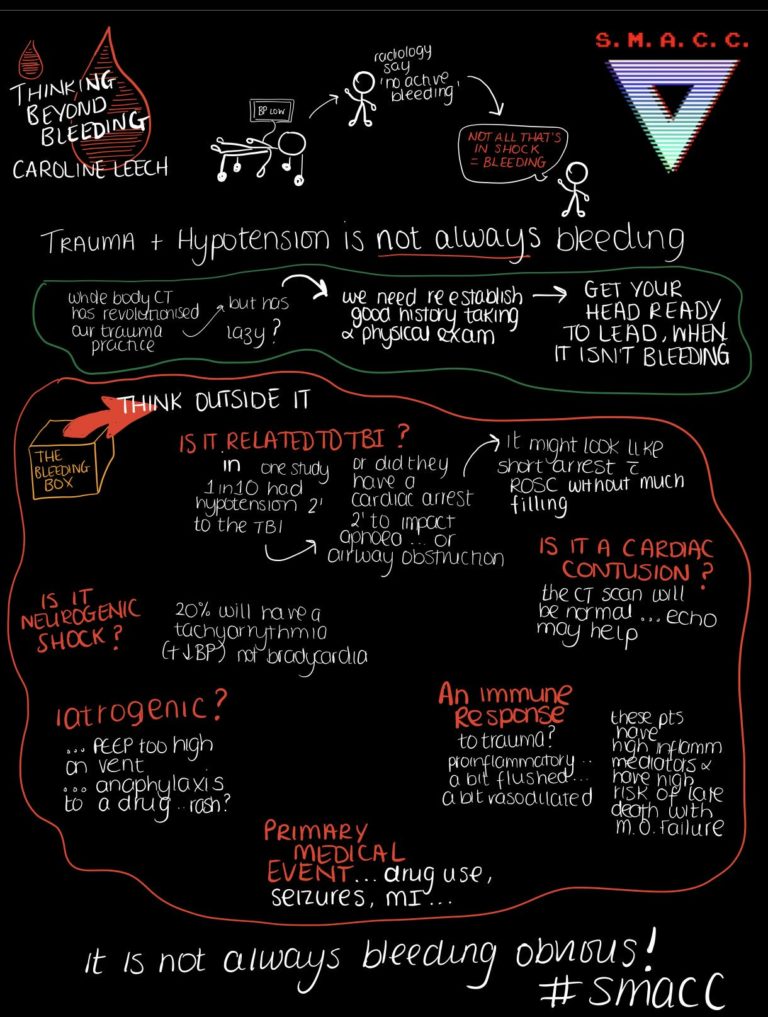 THINKING
BEYOND
BLEEDING
CAROLINE LEECH
BP LOW
radiology
say
'no active
bleeding'
NOT ALL THAT'S
IN SHOCK
= BLEEDING
S. M. A. C. C.
TRAUMA + Hypotension is not always bleeding
whole body CT
has revolutionised
our trauma
practice
but has
lazy?
we need re establish
good history taking
& physical exam
GET YOUR
HEAD READY
TO LEAD, WHEN
IT ISN'T BLEEDING
THINK OUTSIDE IT
THE
BLEEDING
BOX
IS IT RELATED TO TBI ?
in one study
1 in 10 had
hypotension 2'
to the TBI
or did they
have a
cardiac arrest
2' to impact
apnoea ... or
airway obstruction
it might look like
short arrest c̄
ROSC without much
filling
IS IT A CARDIAC
CONTUSION ?
the CT scan will
be normal ... echo
may help
IS IT
NEUROGENIC
SHOCK ?
20% will have a
tachyarrythmia
(+↓BP) not bradycardia
Iatrogenic?
... PEEP too high
on vent
... anaphylaxis
to a drug .. rash?
An immune
Response
to trauma?
proinflammatory ..
a bit flushed...
a bit vasodilated
these pts
have
high inflamm
mediators &
have high
risk of late
death with
M.O. failure
PRIMARY
MEDICAL
EVENT... drug use,
seizures, MI...
it is not always bleeding obvious!
#smacc